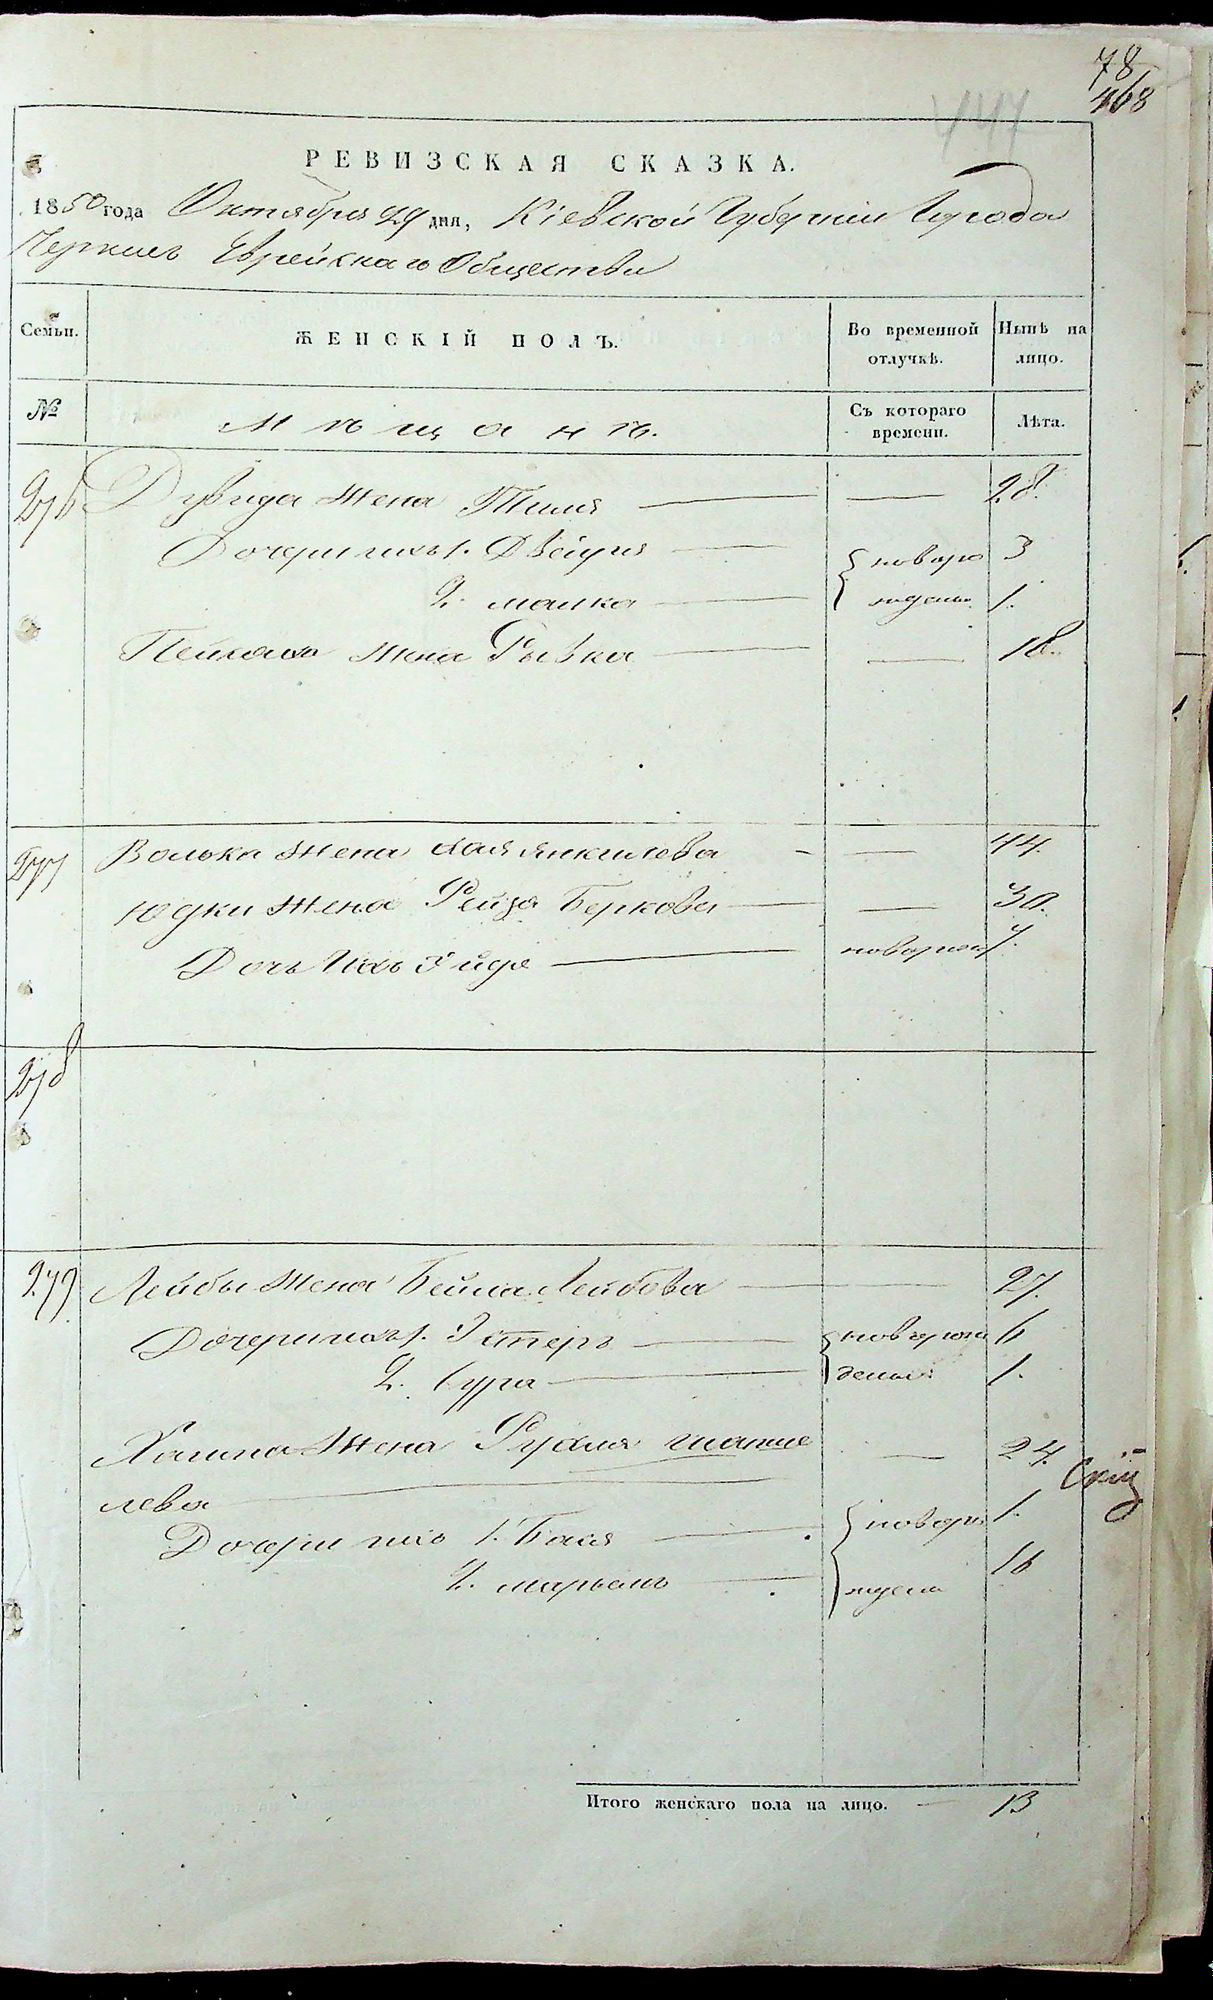 78
468
444
РЕВИЗСКАЯ СКАЗКА.
1850 года Октября 29 дня, Кіевской Губерніи Города
Черкасъ Еврейскаго Общества
Семьи. ЖЕНСКІЙ ПОЛЪ. Во временной отлучкѣ. Нынѣ на лицо.
№ Мѣщанъ. Съ котораго времени. Лѣта.
276 Дувида жена 28.
Дочери ихъ 1. Двейра новоро 3
2. малка жденн. 1.
жена Рывка 18.
277 Волька жена Хая Янкилева 44.
Юдки жена Рейза Беркова 30.
Дочь ихъ Эйдя новорож 7.
278
279 Лейбы жена Бейла Лейбова 27.
Дочери ихъ 1. Эстеръ новорож 6
2. Сура дены. 1.
жена Рухля 24.
лева
Дочери ихъ 1. Бася новоро 1.
2. марьемъ ждены
Итого женскаго пола на лицо. 13